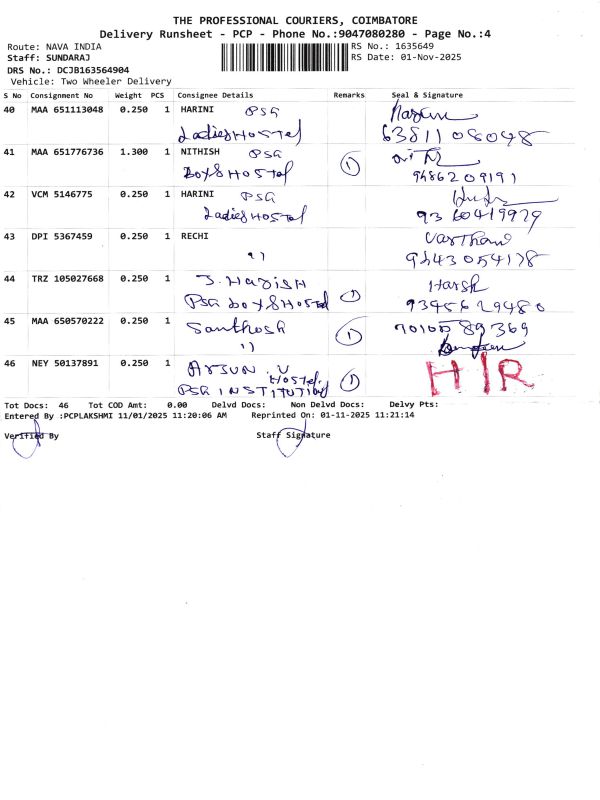 THE PROFESSIONAL COURIERS, COIMBATORE
Delivery Runsheet - PCP - Phone No.:9047080280 - Page No.:4
Route: NAVA INDIA
Staff: SUNDARAJ
DRS No.: DCJB163564904
Vehicle: Two Wheeler Delivery
RS No.: 1635649
RS Date: 01-Nov-2025
S No Consignment No Weight PCS Consignee Details Remarks Seal & Signature
40 MAA 651113048 0.250 1 HARINI PSG
Ladies Hostel 6381108048
41 MAA 651776736 1.300 1 NITHISH PSG 1
Boys Hostel 9486209191
42 VCM 5146775 0.250 1 HARINI PSG
Ladies Hostel 9360419979
43 DPI 5367459 0.250 1 RECHI Varthan
" 9443054178
44 TRZ 105027668 0.250 1 J. Harish Harsh
PSG boys Hostel 1 9345629480
45 MAA 650570222 0.250 1 Santhosh 1 7010589369
"
46 NEY 50137891 0.250 1 Arjun. V H/R
Hostel.
PSG INSTITUTION 1
Tot Docs: 46 Tot COD Amt: 0.00 Delvd Docs: Non Delvd Docs: Delvy Pts:
Entered By :PCPLAKSHMI 11/01/2025 11:20:06 AM Reprinted On: 01-11-2025 11:21:14
Verified By Staff Signature